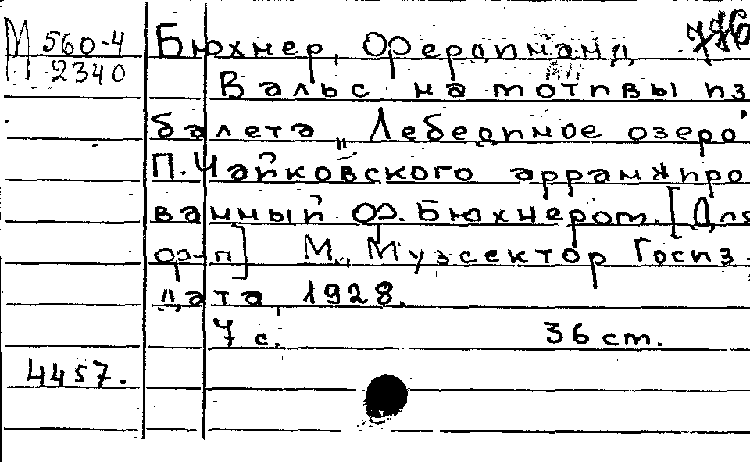 М 560-4 Бюхнер, Фердинанд 776
2340 Вальс на мотивы из
балета „Лебединое озеро"
П. Чайковского аранжиро
ванный Ф. Бюхнером. [Для
ф-п] М., Музсектор Госиз
дата, 1928.
7 с. 36 cm.
4457.